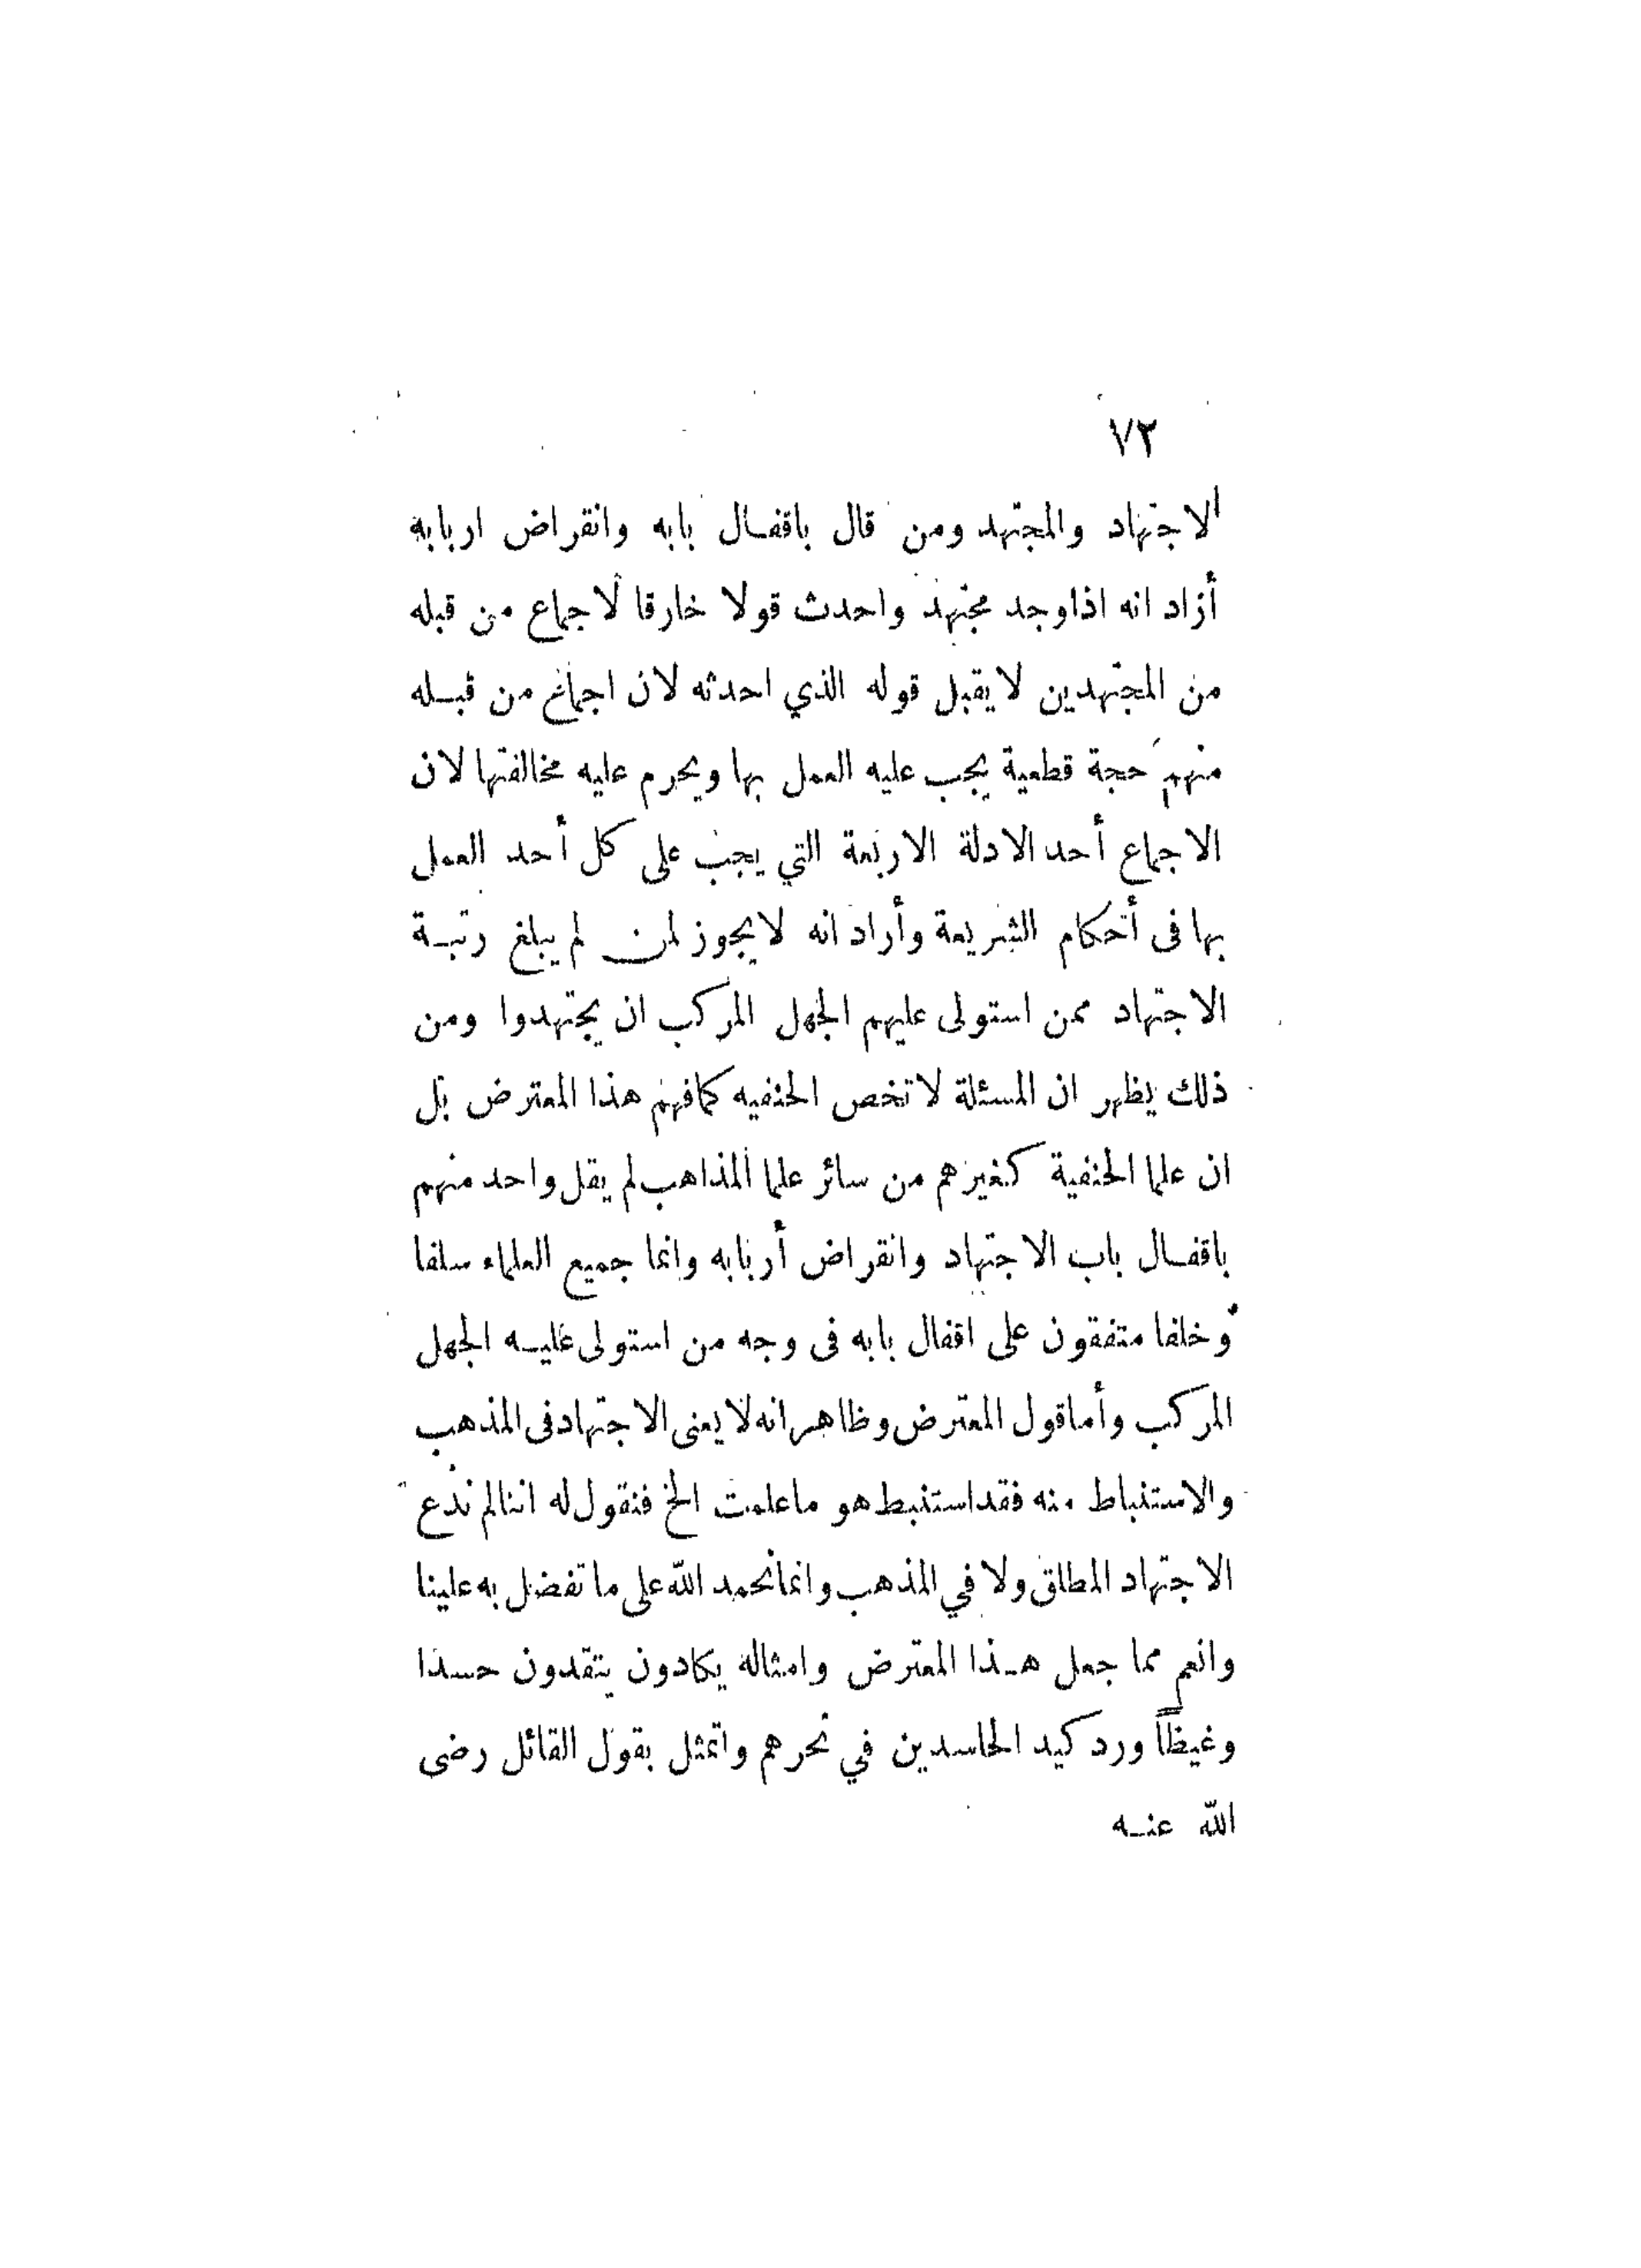 ٧٢
الاجتهاد والمجتهد ومن قال باقفال بابه وانقراض اربابه
أراد انه اذا وجد مجتهد واحدث قولا خارقا لاجماع من قبله
من المجتهدين لا يقبل قوله الذي احدثه لان اجماع من قبله
منهم حجة قطعية يجب عليه العمل بها ويحرم عليه مخالفتها لان
الاجماع أحد الادلة الاربعة التي يجب على كل أحد العمل
بها فى أحكام الشريعة وأراد انه لا يجوز لمن لم يبلغ رتبة
الاجتهاد ممن استولى عليهم الجهل المركب ان يجتهدوا ومن
ذلك يظهر ان المسئلة لا تخص الحنفيه كما فهم هذا المعترض بل
ان علما الحنفية كغيرهم من سائر علما المذاهب لم يقل واحد منهم
باقفال باب الاجتهاد وانقراض أربابه وانما جميع العلماء سلفا
وخلفا متفقون على اقفال بابه فى وجه من استولى عليه الجهل
المركب وأما قول المعترض وظاهر انه لا يعنى الاجتهاد فى المذهب
والاستنباط منه فقد استنبط هو ما علمت الخ فنقول له اننا لم ندع
الاجتهاد المطلق ولا في المذهب وانما نحمد الله على ما تفضل به علينا
وانعم مما جعل هذا المعترض وامثاله يكادون يتقدون حسدا
وغيظاً ورد كيد الحاسدين في نحرهم واتمثل بقول القائل رضى
الله عنه